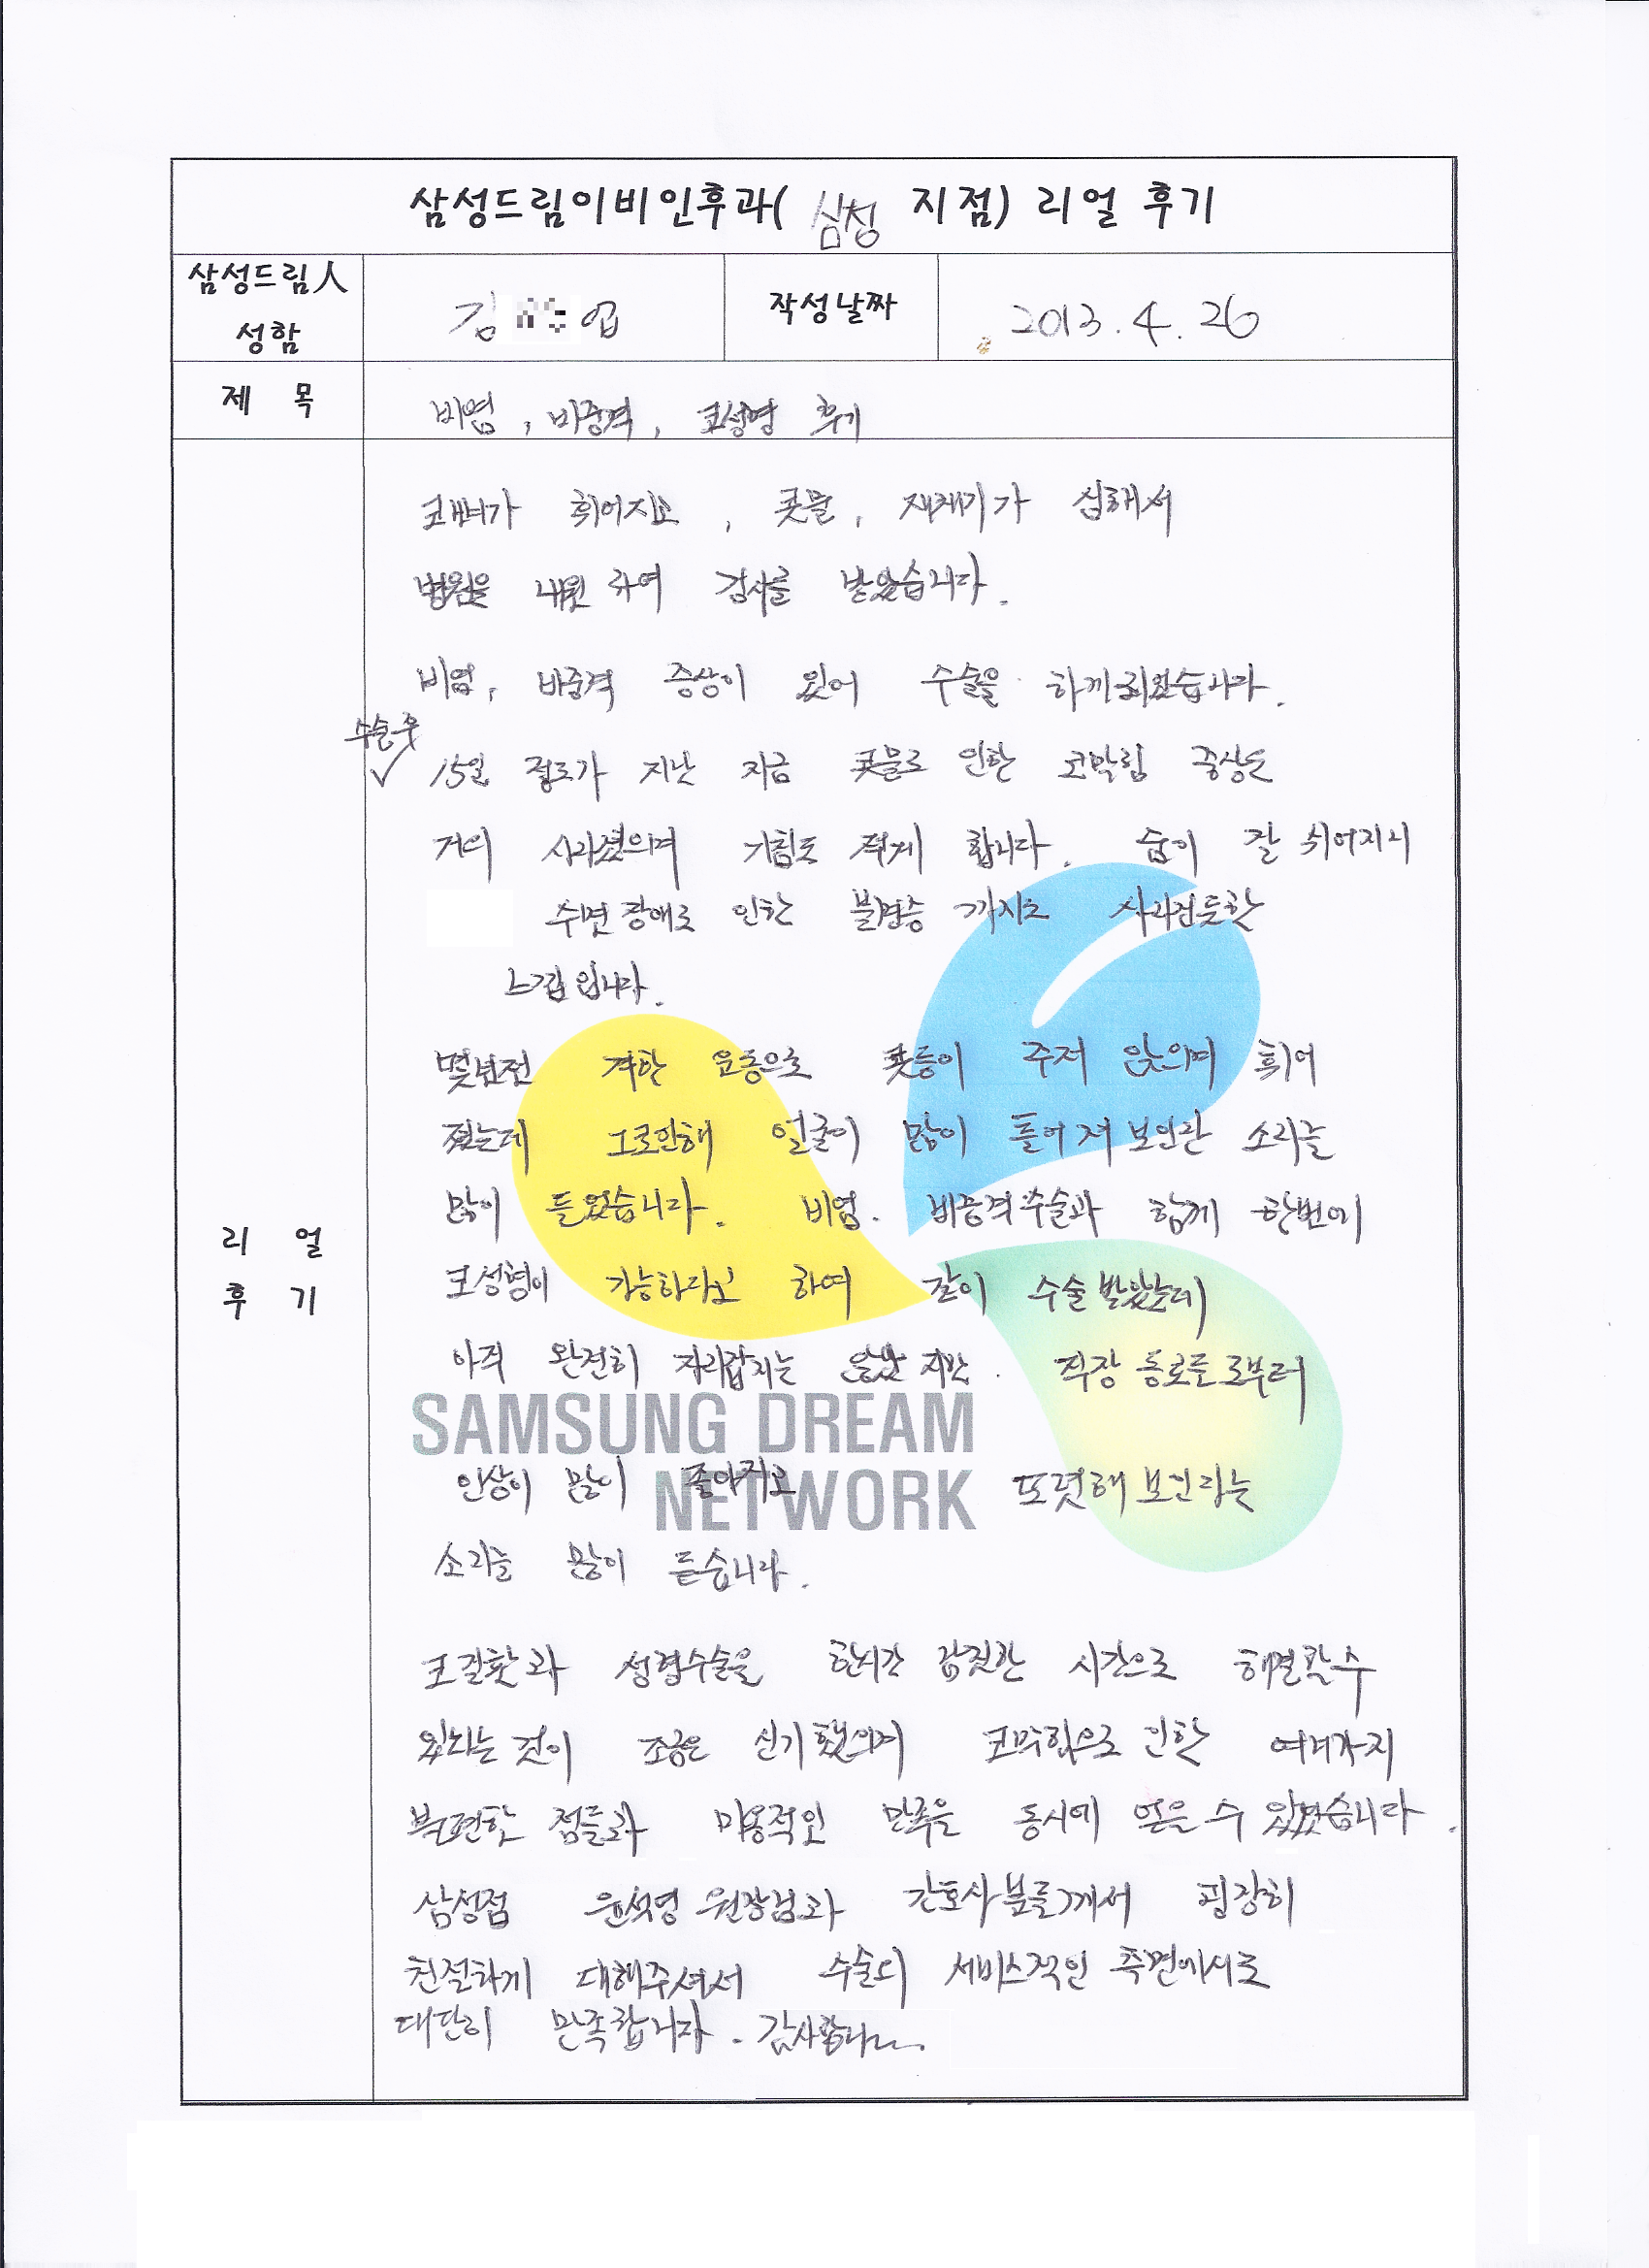 삼성드림이비인후과( 삼성 지점) 리얼 후기
삼성드림人 성함
김 엽
작성날짜
2013. 4. 26
제 목
비염, 비중격, 코성형 후기
리 얼 후 기
코뼈가 휘어지고, 콧물, 재채기가 심해서
병원을 내원 하여 검사를 받았습니다.
비염, 비중격 증상이 있어 수술을 하게되었습니다.
수술후
✓ 15일 정도가 지난 지금 콧물로 인한 코막힘 증상도
거의 사라졌으며 기침도 적게 합니다. 숨이 잘 쉬어지니
수면장애로 인한 불면증 까지도 사라진듯한
느낌입니다.
몇년전 격한 운동으로 콧등이 주저 앉으며 휘어
졌는데 그로인해 얼굴이 많이 틀어져 보인단 소리를
많이 들었습니다. 비염. 비중격수술과 함께 한번에
코성형이 가능하다고 하여 같이 수술 받았는데
아직 완전히 자리잡지는 않았지만. 직장 동료들로부터
SAMSUNG DREAM
NETWORK
인상이 많이 좋아지고 또렷해 보인다는
소리를 많이 듣습니다.
코질환과 성형수술을 한시간 남짓한 시간으로 해결할수
있다는 것이 조금은 신기했으며 코막힘으로 인한 여러가지
불편한 점들과 미용적인 만족을 동시에 얻을 수 있었습니다.
삼성점 윤석영 원장님과 간호사분들께서 굉장히
친절하게 대해주셔서 수술외 서비스적인 측면에서도
대단히 만족합니다. 감사합니다.